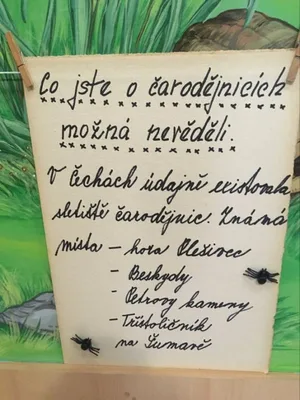 Co jste o čarodějnicích
možná nevěděli.
V Čechách údajně existovala
sletiště čarodějnic. Známá
místa – hora Plešivec
– Beskydy
– Petrovy kameny
– Třístoličník
na Šumavě